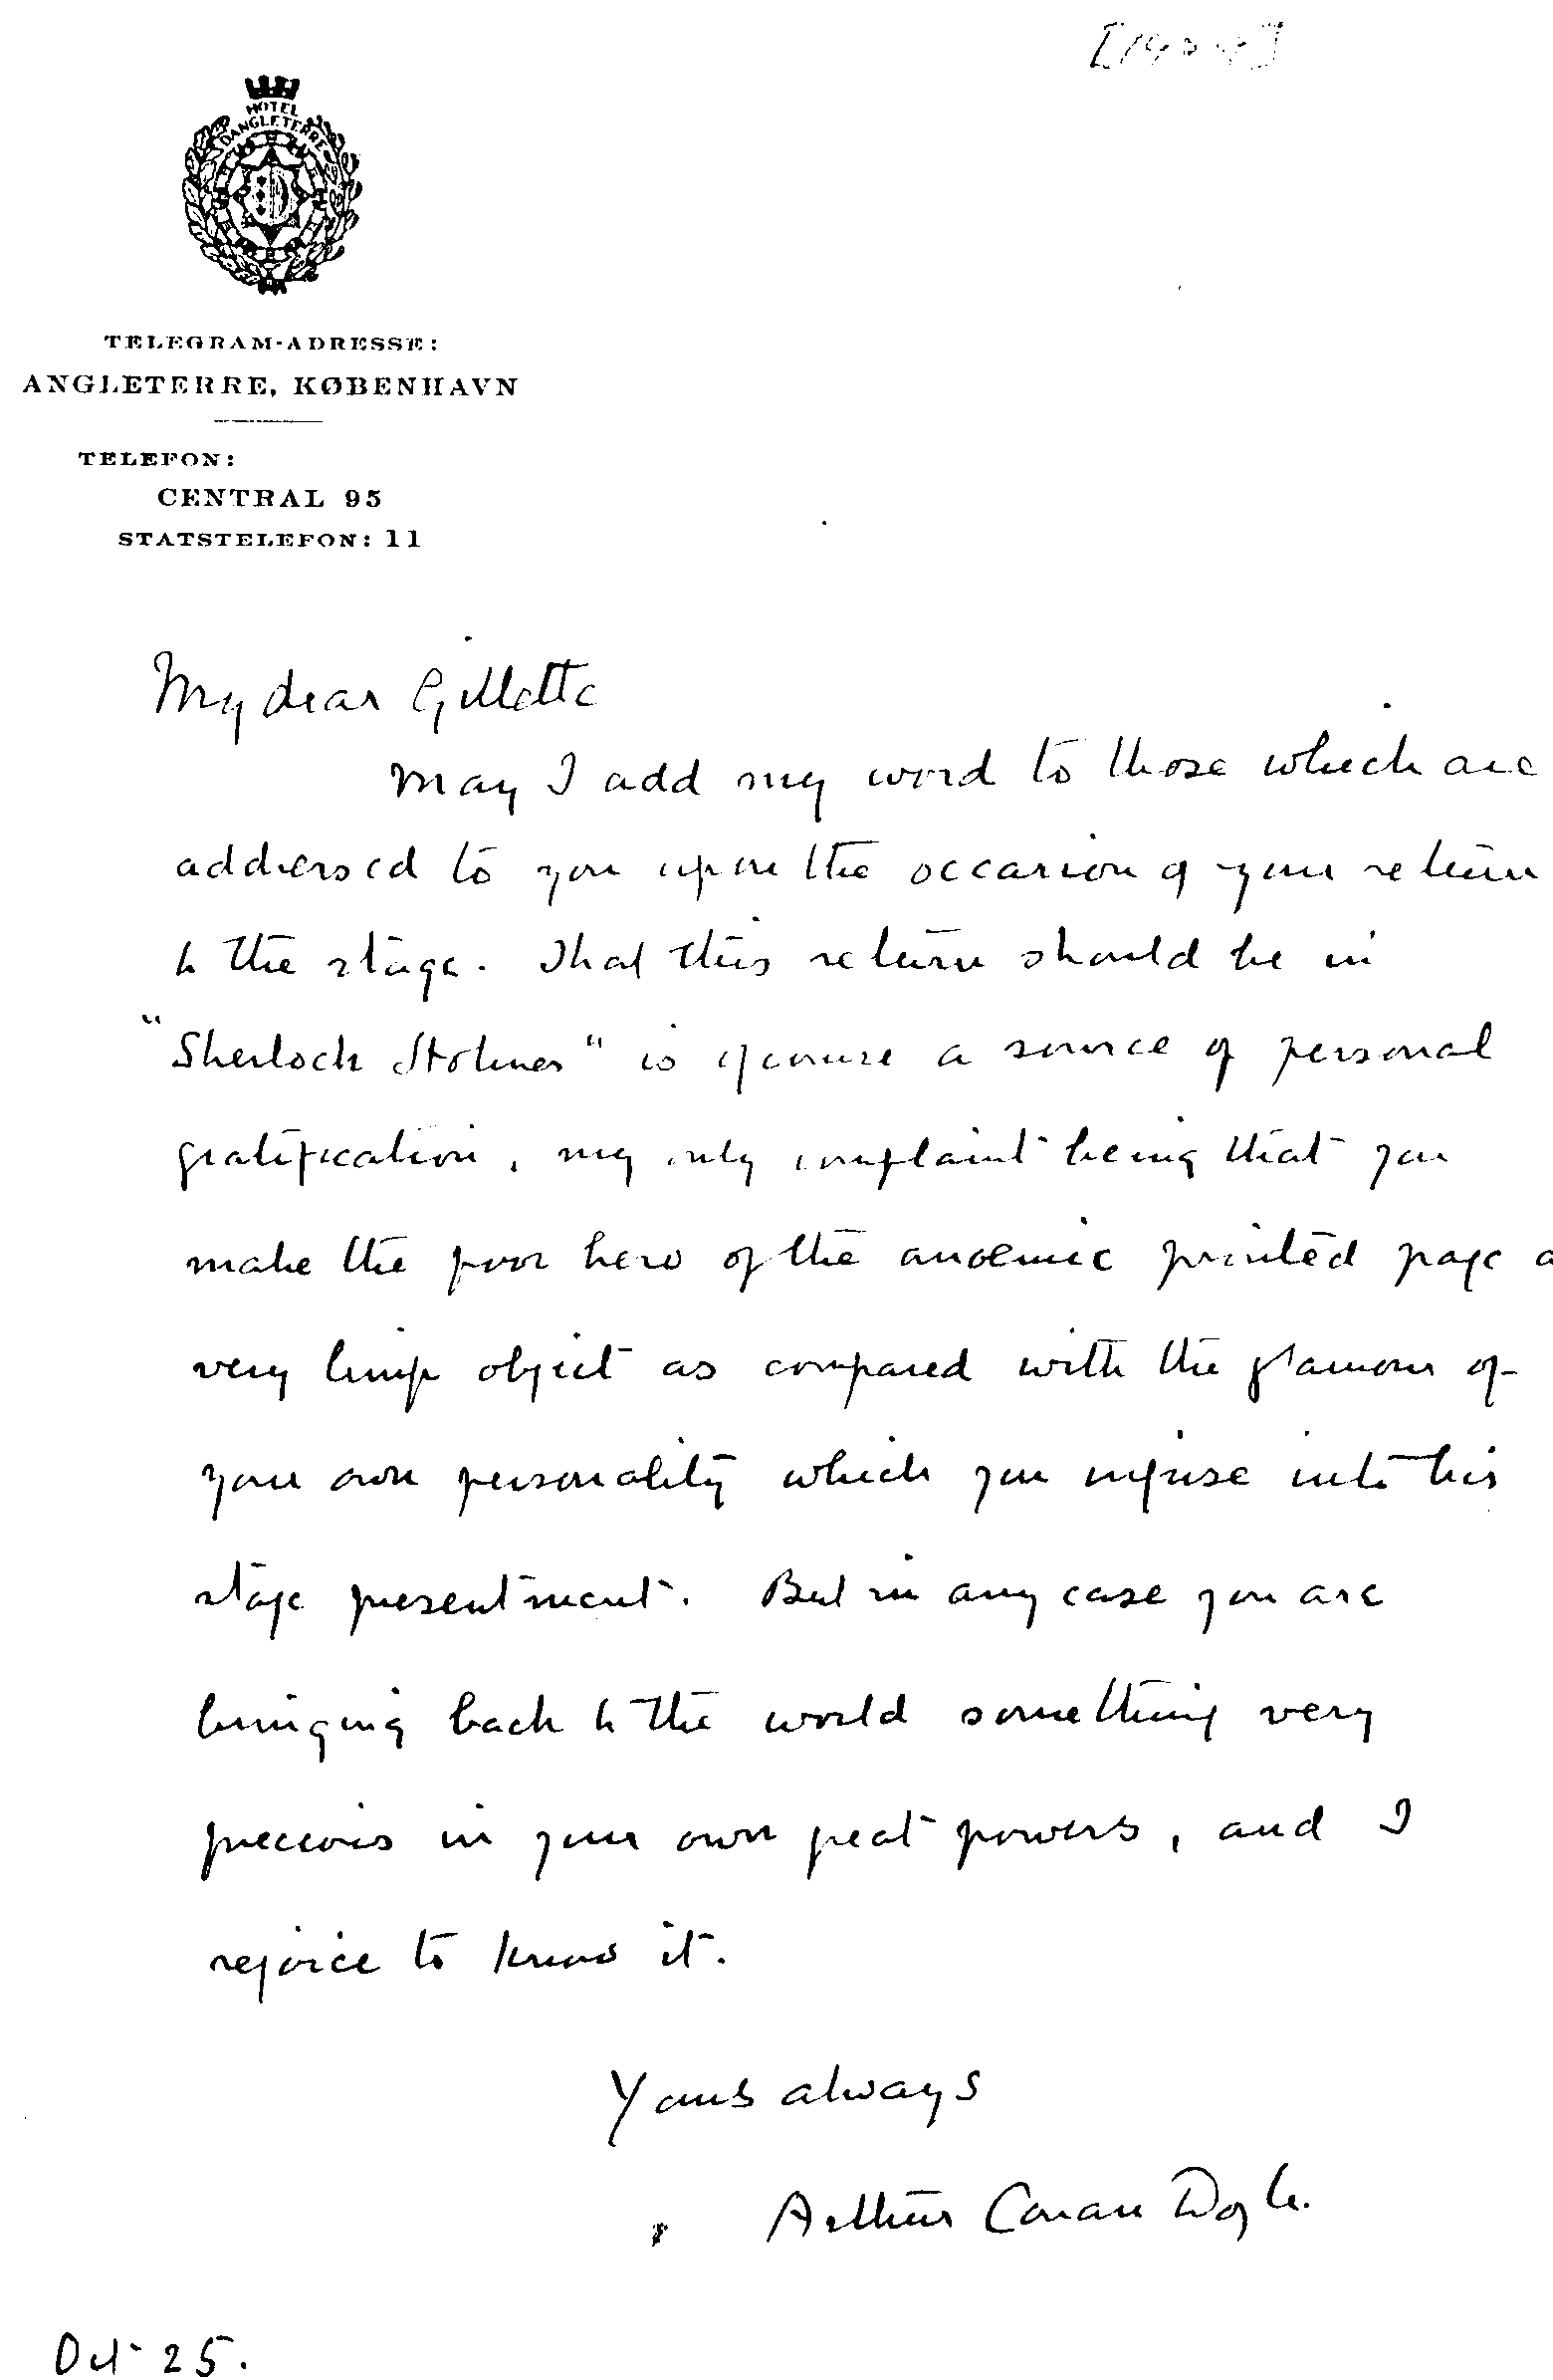 HOTEL
DANGLETERRE
TELEGRAM-ADRESSE:
ANGLETERRE, KØBENHAVN
TELEFON:
CENTRAL 95
STATSTELEFON: 11
My dear Gillette
May I add my word to those which are
addressed to you upon the occasion of your return
to the stage. That this return should be in
"Sherlock Holmes" is of course a source of personal
gratification, my only complaint being that you
make the poor hero of the anaemic printed page a
very limp object as compared with the glamour of
your own personality which you infuse into his
stage presentment. But in any case you are
bringing back to the world something very
precious in your own great powers, and I
rejoice to know it.
Yours always
Arthur Conan Doyle.
Oct 25.